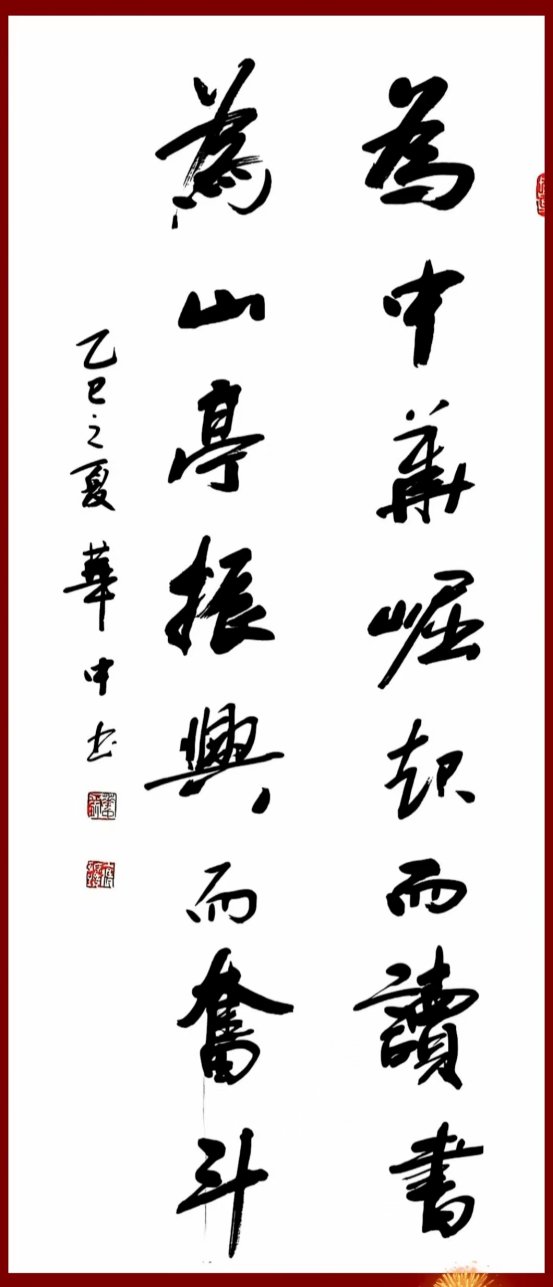 為中華崛起而讀書
為山亭振興而奮斗
乙巳之夏華中书